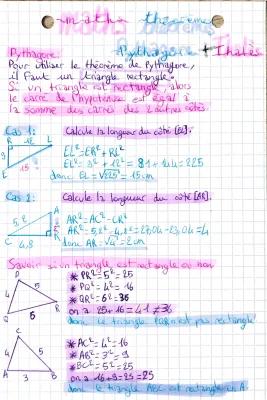 maths théorème
Pythagore + Thalès
Pythagore:
Pour utiliser le théorème de Pythagore,
il faut un triangle rectangle.
Si un triangle est rectangle, alors
le carré de l'hypoténuse est égal à
la somme des carrés des 2 autres côtés.
Cas 1: Calcule la longueur du côté [EL].
R 12 L
9
E 15
EL²=ER²+RL²
EL²=9²+12²=81+144=225
donc EL=√225=15cm
Cas 2: Calcule la longueur du côté [AR].
A
5,2
R
C 4,8
AR²=AC²-CR²
AR²=5,2²-4,8²=27,04-23,04=4
donc AR=√4=2cm
Savoir si un triangle est rectangle ou non
P
4 5
Q 6 R
* PR²=5²=25
* PQ²=4²=16
* QR²=6²=36
on a 25+16=41≠36
donc le triangle PQR n'est pas rectangle
C
4 5
A 3 B
* AC²=4²=16
* AB²=3²=9
* BC²=5²=25
on a 16+9=25=25
donc le triangle ABC est rectangle en A.